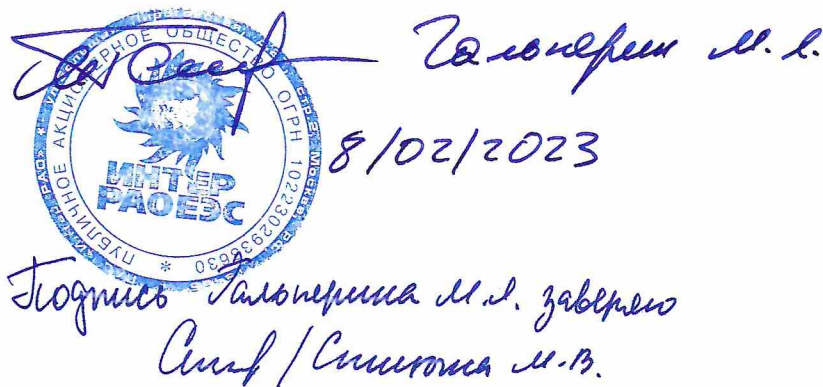 Гальперин М.Л.
ПУБЛИЧНОЕ АКЦИОНЕРНОЕ ОБЩЕСТВО ОГРН 1022302933630 *
ИНТЕР
РАОЕЭС
8/02/2023
Подпись Гальперина М.Л. заверяю
М.В.